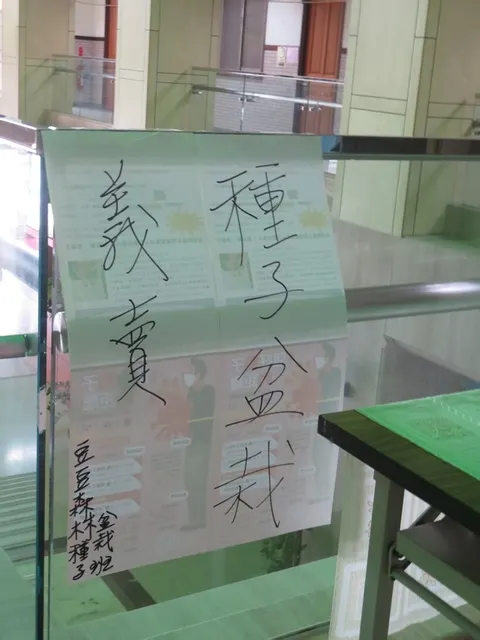 種子盆栽
義賣
豆豆森林種子
盆栽班